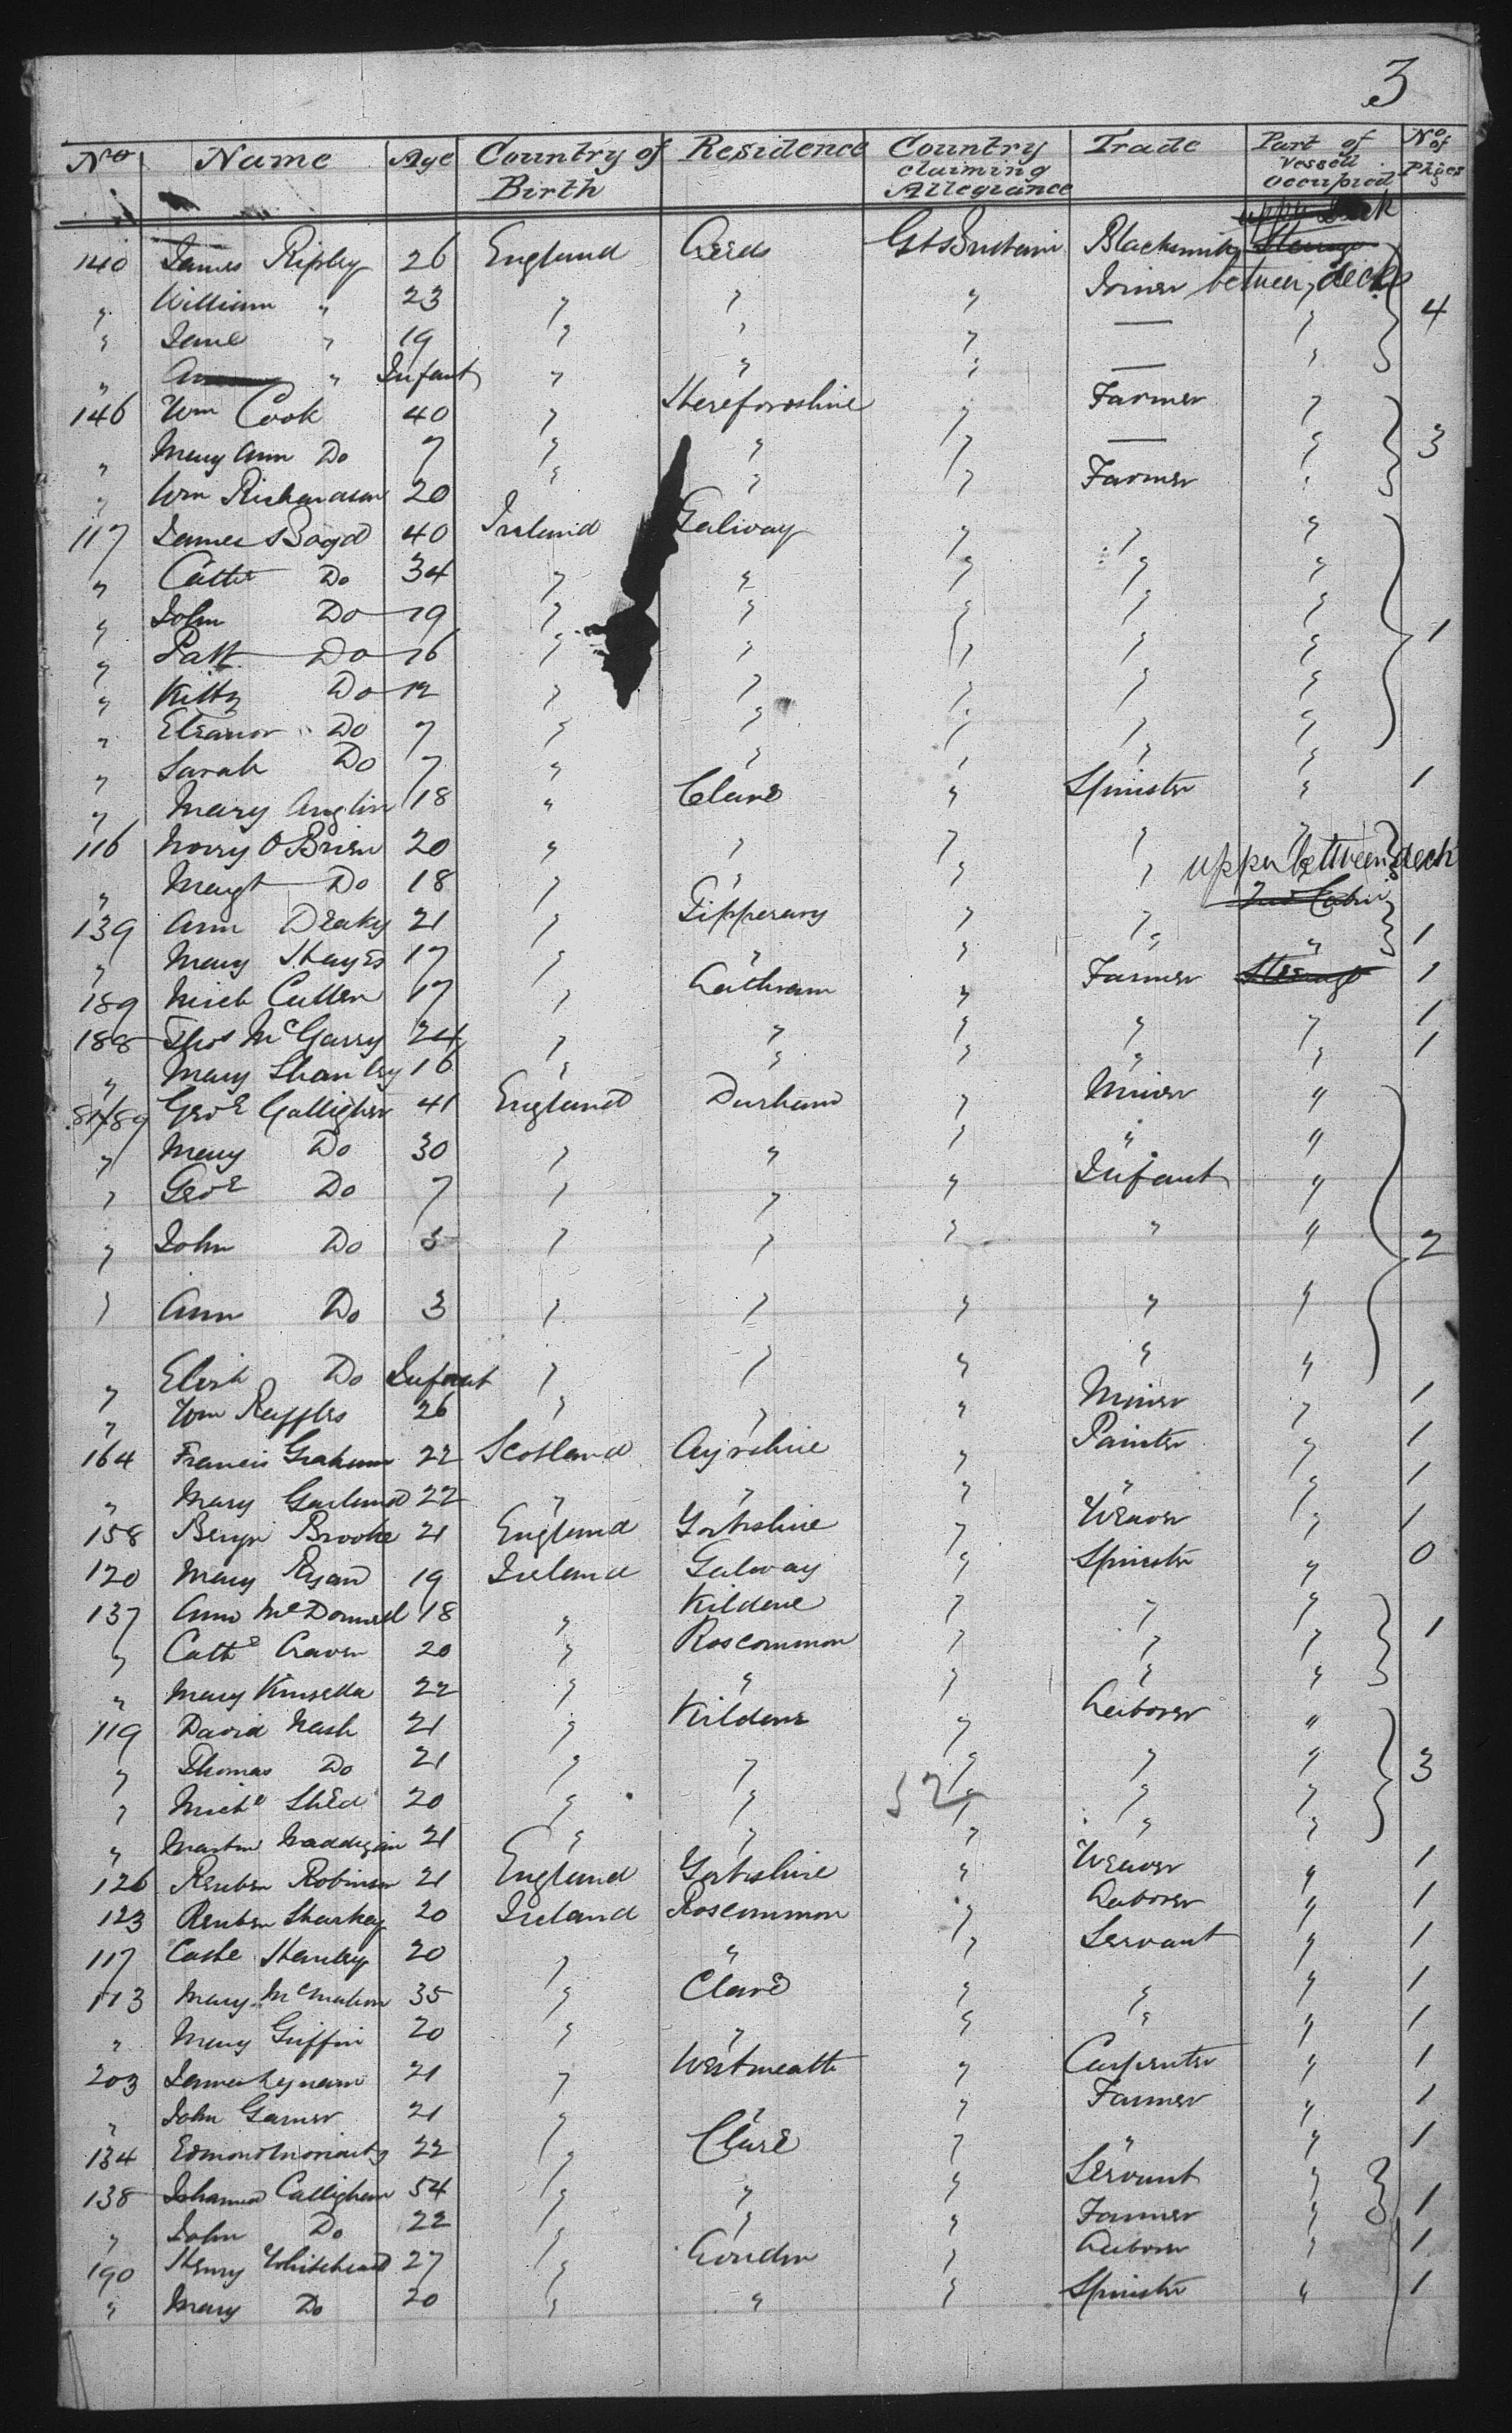 3
No Name Age Country of Birth Residence Country claiming Allegiance Trade Part of Vessell occupied No of Pkges
upper deck
140 James Ripley 26 England Leeds Gt Britain Blacksmith Steerage
" William " 23 " " " Joiner between decks
" Jane " 19 " " " — " 4
" " Infant " " " — "
146 Wm Cook 40 " Herefordshire " Farmer "
" Mary Ann Do 7 " " " — " 3
" Wm Richardson 20 " " " Farmer "
117 James Boyd 40 Ireland Galway " " "
" Cathe Do 34 " " " " "
" John Do 19 " " " " "
" Patt Do 16 " " " " " 1
" Kitty Do 12 " " " " "
" Eleanor Do 7 " " " " "
" Sarah Do 7 " " " " "
" Mary Anglin 18 " Clare " Spinster " 1
116 Norry O Brien 20 " " " " "
" Margt Do 18 " " " " upper between deck
2nd Cabin
139 Ann Deaky 21 " Tipperary " "
" Mary Hayes 17 " " " " " 1
189 Mich Cullen 17 " Leitheram " Farmer Steerage 1
188 Thos McGarry 24 " " " " " 1
" Mary Shanley 16 " " " " " 1
81/89 Geoe Galligher 41 England Durham " Miner "
" Mary Do 30 " " " " "
" Geoe Do 7 " " " Infant "
" John Do 5 " " " " " 2
" Ann Do 3 " " " " "
" Elizh Do Infant " " " " "
" Wm Reffles 26 " " " Miner " 1
164 Francis Graham 22 Scotland Ayrshire " Painter " 1
" Mary Garland 22 " " " " " 1
158 Benjn Brooke 21 England Yorkshire " Weaver " 1
120 Mary Ryan 19 Ireland Galway " Spinster " 0
137 Ann McDonnell 18 " Kildare " " "
" Cathe Craven 20 " Roscommon " " " 1
" Mary Kinsella 22 " " " " "
119 David Nash 21 " Kildare " Laborer "
" Thomas Do 21 " " " " " 3
" Miche Shea 20 " " 52 " " "
" Martin Maddigan 21 " " " " "
126 Reuben Robinson 21 England Yorkshire " Weaver " 1
123 Reuben Sharkey 20 Ireland Roscommon " Laborer " 1
117 Cathe Hanley 20 " " " Servant " 1
113 Mary McMahon 35 " Clare " " " 1
" Mary Griffin 20 " " " " " 1
203 James 21 " Westmeath " Carpenter " 1
" John Garner 21 " " " Farmer " 1
134 Edmond Moriarty 22 " Clare " " " 1
138 Johanna Callighan 54 " " " Servant "
" John Do 22 " " " Farmer " 1
190 Henry Whitehead 27 " London " Laborer " 1
" Mary Do 20 " " " Spinster " 1